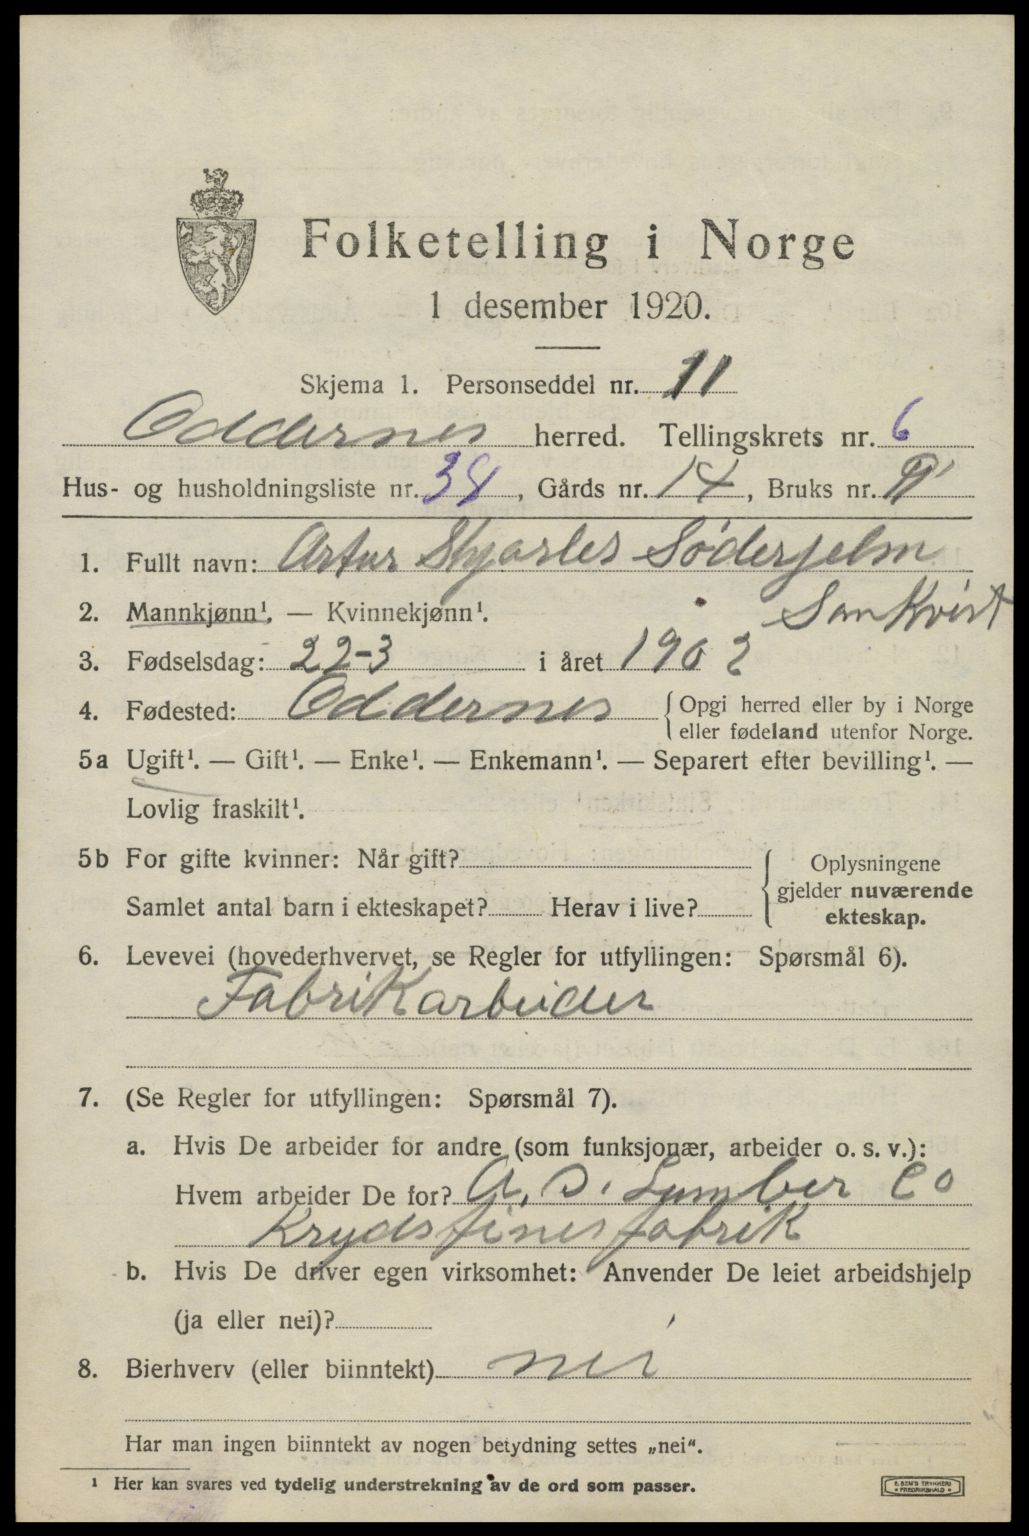 Folketelling i Norge
1 desember 1920.
Skjema 1. Personseddel nr. 11
Oddernes herred. Tellingskrets nr. 6
Hus- og husholdningsliste nr. 38, Gårds nr. 14, Bruks nr.
1. Fullt navn: Artur Skjarles Søderjelm
Sankvist
2. Mannkjønn¹. — Kvinnekjønn¹.
3. Fødselsdag: 22-3 i året 1902
4. Fødested: Oddernes { Opgi herred eller by i Norge
eller fødeland utenfor Norge.
5a Ugift¹. — Gift¹. — Enke¹. — Enkemann¹. — Separert efter bevilling¹. —
Lovlig fraskilt¹.
5b For gifte kvinner: Når gift?
Samlet antal barn i ekteskapet? Herav i live?
{ Oplysningene
gjelder nuværende
ekteskap.
6. Levevei (hovederhvervet, se Regler for utfyllingen: Spørsmål 6).
Fabrikarbeider
7. (Se Regler for utfyllingen: Spørsmål 7).
a. Hvis De arbeider for andre (som funksjonær, arbeider o. s. v.):
Hvem arbeider De for? A. S. Lumber Co
Krydsfinerfabrik
b. Hvis De driver egen virksomhet: Anvender De leiet arbeidshjelp
(ja eller nei)?
8. Bierhverv (eller biinntekt) nei
Har man ingen biinntekt av nogen betydning settes „nei“.
¹ Her kan svares ved tydelig understrekning av de ord som passer.
E. SEM'S TRYKKERI
FREDRIKSHALD